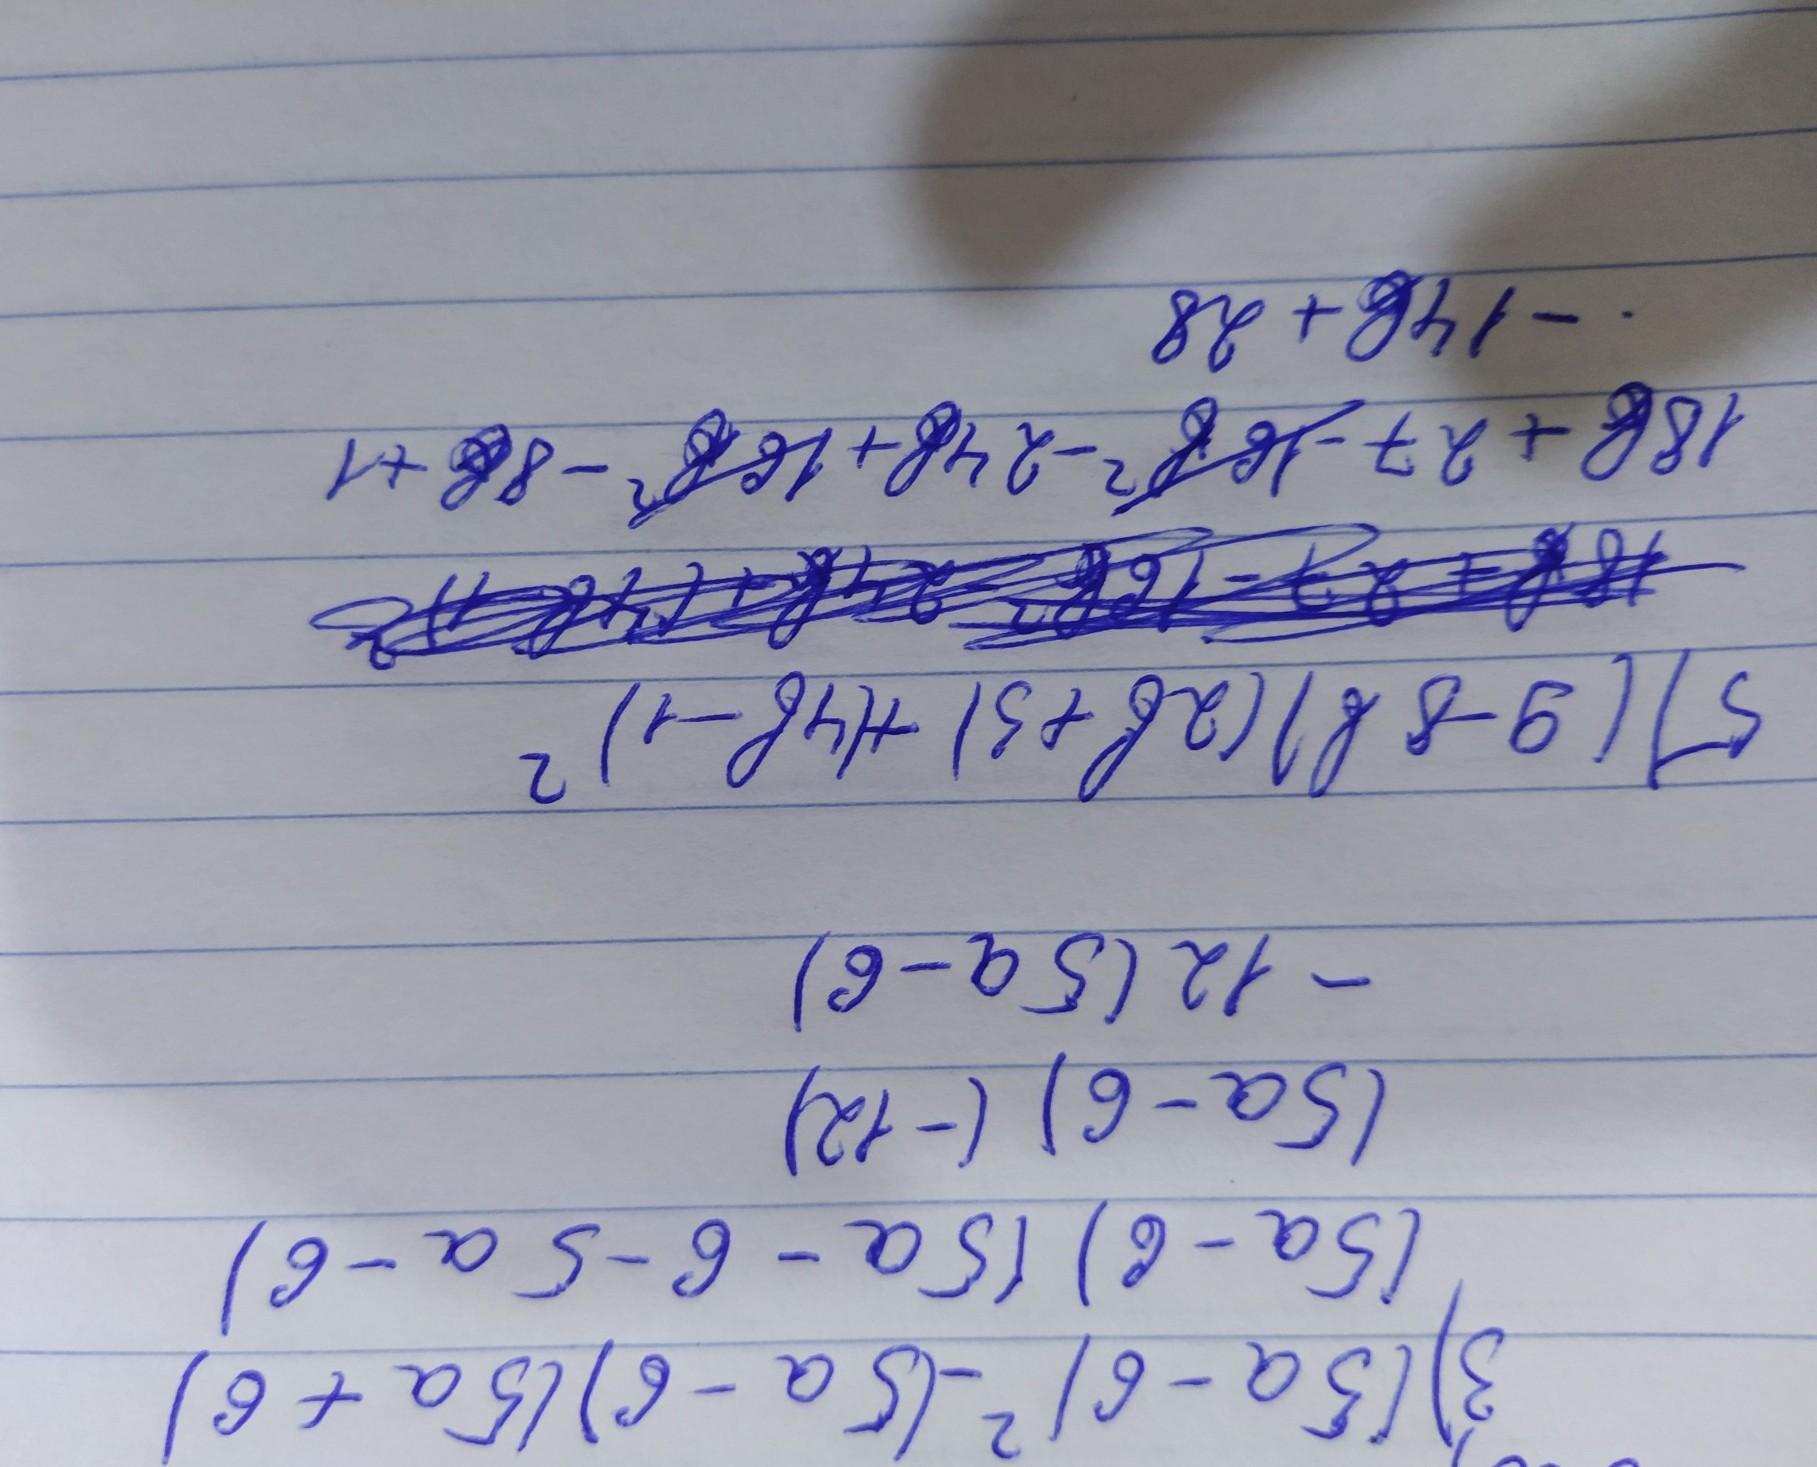 3) (5a-6)² - (5a-6)(5a+6)
(5a-6) (5a-6-5a-6)
(5a-6) (-12)
-12 (5a-6)
5) (9-8b) (2b+3) + (4b-1)²
18b+27-16b²-24b+(4b-1)²
18b+27-16b²-24b+16b²-8b+1
-14b+28